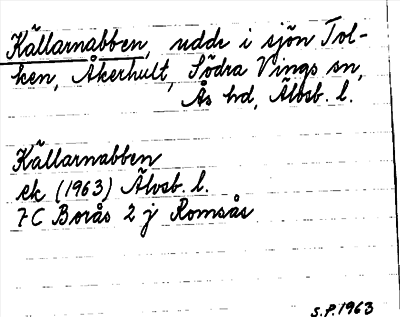 Källarnabben, udde i sjön Tol-
ken, Åkerhult, Södra Vings sn,
Ås hd, Älvsb. l.
Källarnabben
ek (1963) Älvsb. l.
7C Borås 2 j Romsås
S.P. 1963